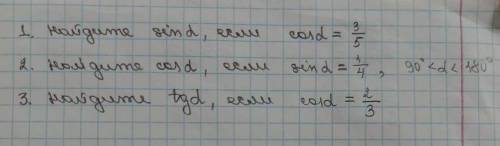 1. Найдите sin α, если cos α = 3/5
2. Найдите cos α, если sin α = 1/4, 90° < α < 180°
3. Найдите tg α, если cos α = 2/3